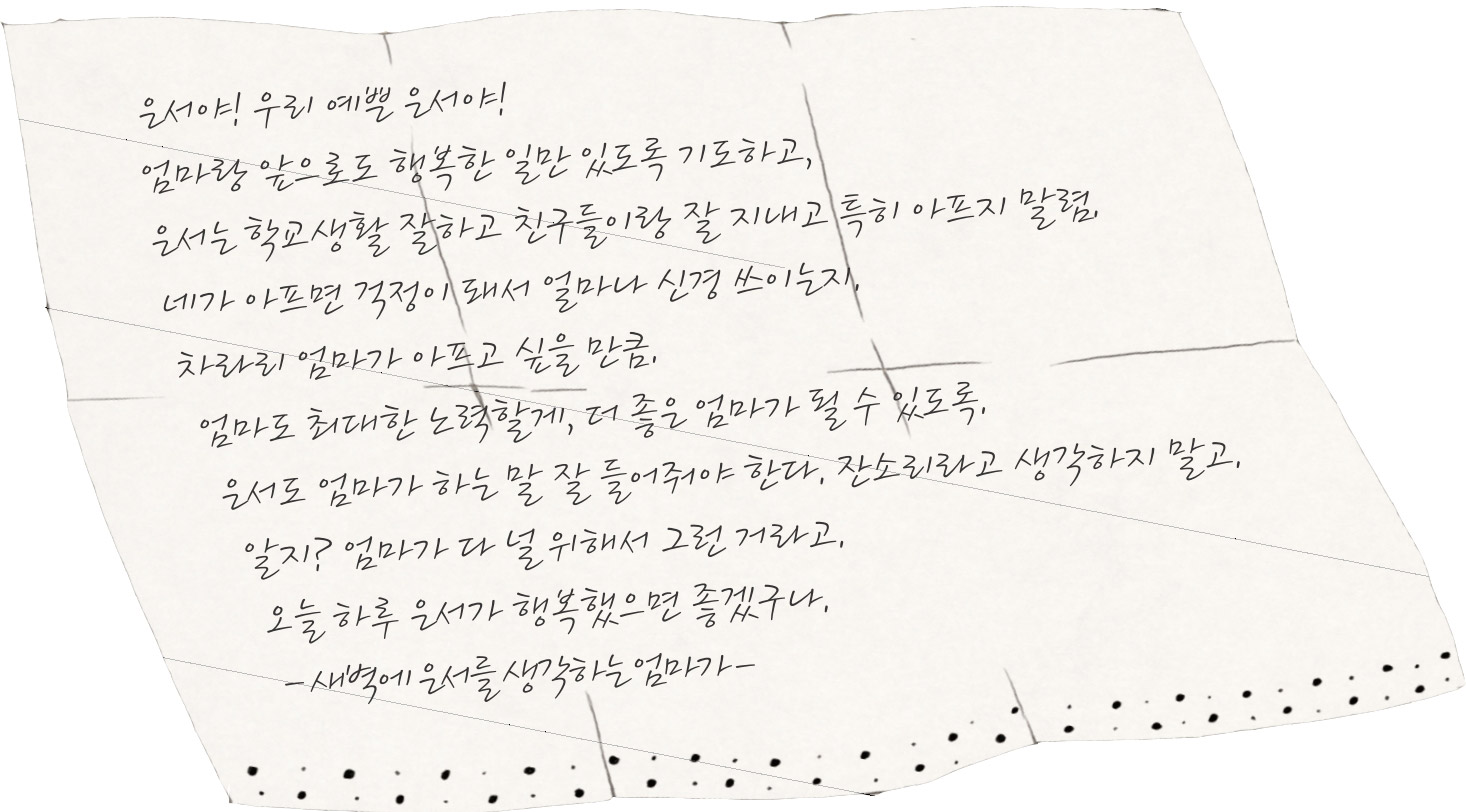 은서야! 우리 예쁜 은서야!
엄마랑 앞으로도 행복한 일만 있도록 기도하고,
은서는 학교생활 잘하고 친구들이랑 잘 지내고 특히 아프지 말렴.
네가 아프면 걱정이 돼서 얼마나 신경 쓰이는지.
차라리 엄마가 아프고 싶을 만큼.
엄마도 최대한 노력할게, 더 좋은 엄마가 될 수 있도록.
은서도 엄마가 하는 말 잘 들어줘야 한다. 잔소리라고 생각하지 말고.
알지? 엄마가 다 널 위해서 그런 거라고.
오늘 하루 은서가 행복했으면 좋겠구나.
-새벽에 은서를 생각하는 엄마가-